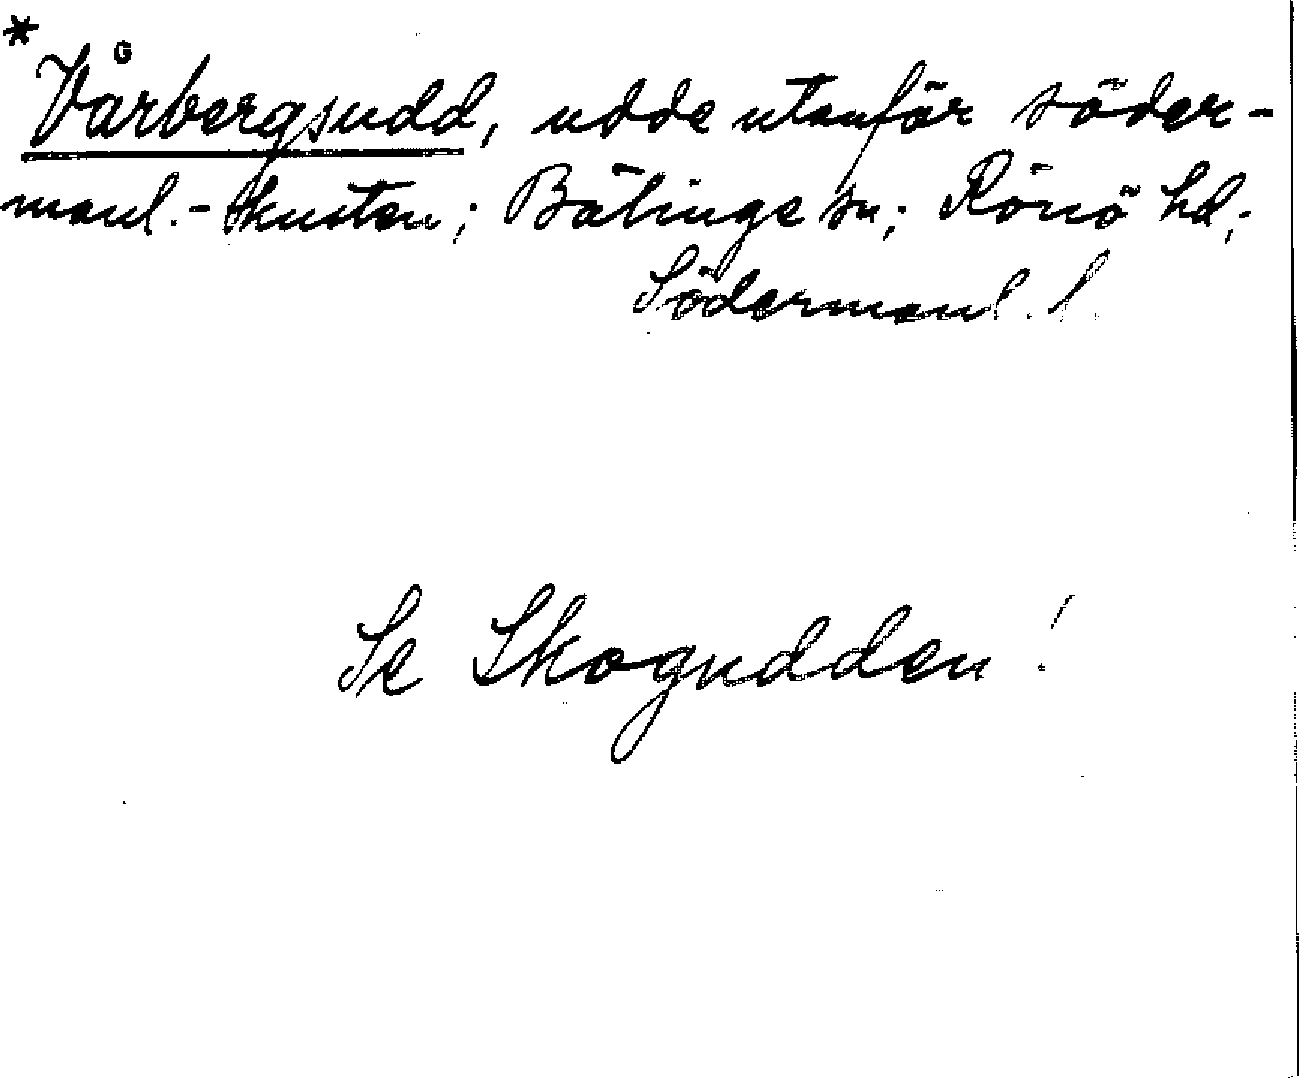 * Vårbergsudd, udde utanför söder-
manl.-kusten; Bälinge sn; Rönö hd;
Södermanl. l.
Se Skogudden!